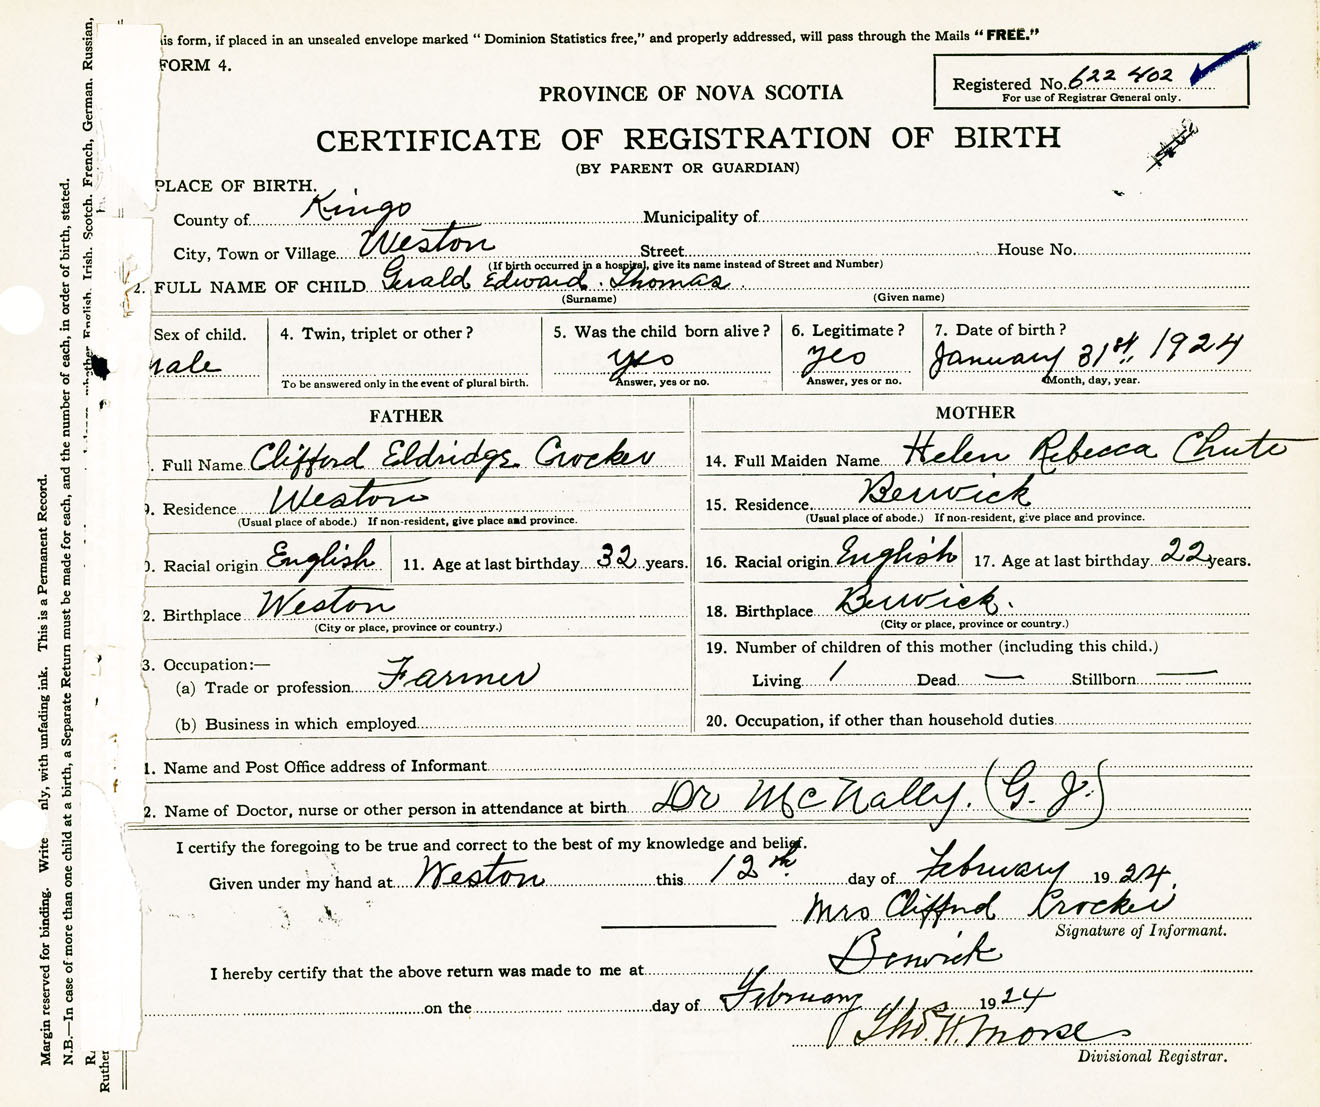 is form, if placed in an unsealed envelope marked “ Dominion Statistics free,” and properly addressed, will pass through the Mails “FREE.”
FORM 4.
Registered No. 622 402
For use of Registrar General only.
PROVINCE OF NOVA SCOTIA
CERTIFICATE OF REGISTRATION OF BIRTH
(BY PARENT OR GUARDIAN)
PLACE OF BIRTH.
County of Kings Municipality of
City, Town or Village Weston Street House No.
(If birth occurred in a hospital, give its name instead of Street and Number)
2. FULL NAME OF CHILD Gerald Edward Thomas
(Surname) (Given name)
Sex of child. 4. Twin, triplet or other ? 5. Was the child born alive ? 6. Legitimate ? 7. Date of birth ?
male yes yes January 31st. 1924
To be answered only in the event of plural birth. Answer, yes or no. Answer, yes or no. Month, day, year.
FATHER MOTHER
. Full Name Clifford Eldridge Crocker 14. Full Maiden Name Helen Rebecca Chute
9. Residence Weston 15. Residence Berwick
(Usual place of abode.) If non-resident, give place and province. (Usual place of abode.) If non-resident, give place and province.
0. Racial origin English 11. Age at last birthday 32 years. 16. Racial origin English 17. Age at last birthday 22 years.
2. Birthplace Weston 18. Birthplace Berwick.
(City or place, province or country.) (City or place, province or country.)
3. Occupation:— 19. Number of children of this mother (including this child.)
(a) Trade or profession Farmer Living 1 Dead — Stillborn —
(b) Business in which employed 20. Occupation, if other than household duties
1. Name and Post Office address of Informant
2. Name of Doctor, nurse or other person in attendance at birth Dr McNally. (G. J.)
I certify the foregoing to be true and correct to the best of my knowledge and belief.
Given under my hand at Weston this 12th day of February 1924.
Mrs Clifford Crocker
Signature of Informant.
I hereby certify that the above return was made to me at Berwick
on the day of February 1924
Thos. H. Morse
Divisional Registrar.
Margin reserved for binding. Write nly, with unfading ink. This is a Permanent Record.
N.B.—In case of more than one child at a birth, a Separate Return must be made for each, and the number of each, in order of birth, stated.
R. whether English, Irish, Scotch, French, German, Russian,
Ruther